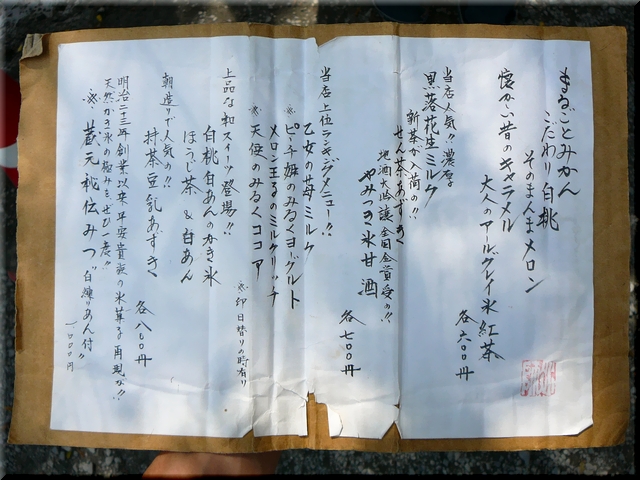 まるごとみかん
こだわり白桃
そのまんまメロン
懐かい昔のキャラメル
大人のアールグレイ氷紅茶
各六〇〇円
当店人気!!濃厚
黒落花生ミルク
新茶が入荷の!!
せん茶あずき
地酒大吟醸全国金賞受の!!
やみつき氷甘酒
各七〇〇円
当店上位ランキングメニュー!!
乙女の苺ミルク
※ピーチ姫のみるくヨーグルト
メロン王子のミルクリッチ
※天使のみるくココア
※印日替りの時有り
上品な和スイーツ登場!!
白桃白あんのかき氷
ほうじ茶&白あん
朝造りで人気の!!
抹茶豆乳あずき
各八〇〇円
明治二十三年創業以来平安貴族の氷菓子再現が!!
天然かき氷の極みをぜひ一度!!
※蔵元秘伝みつ"白練りあん付"
一、〇〇〇円